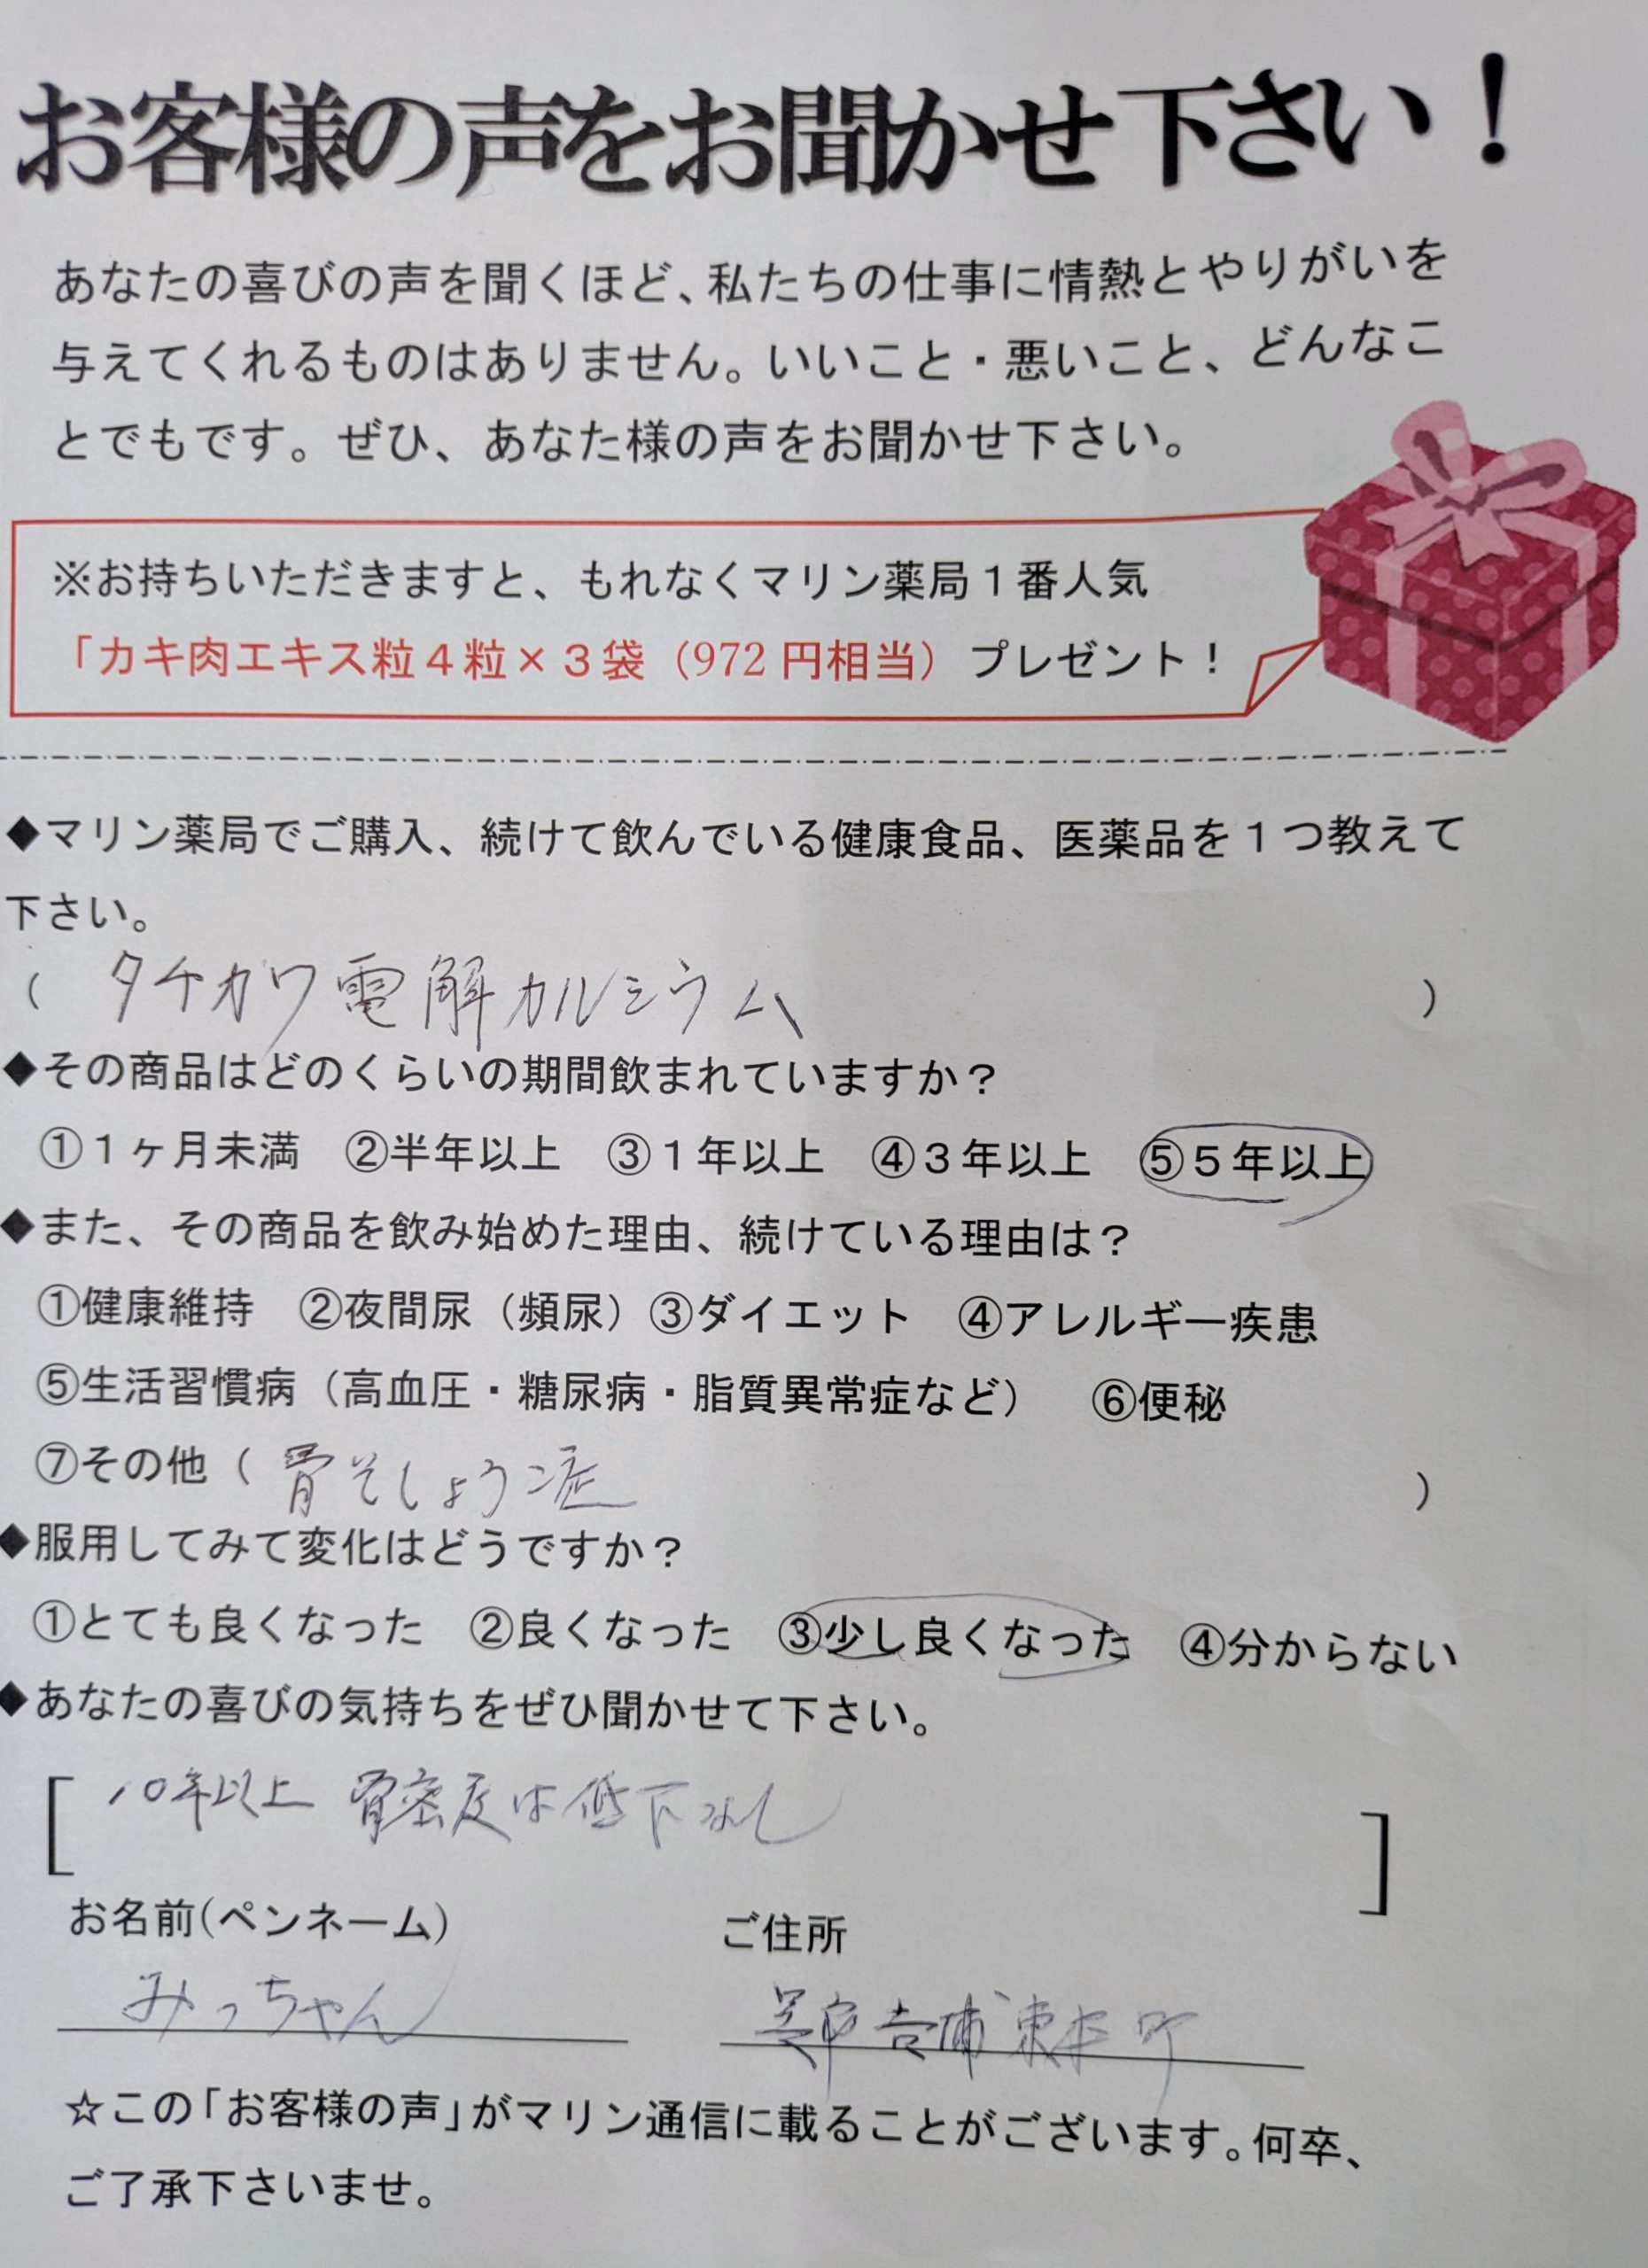 お客様の声をお聞かせ下さい！
あなたの喜びの声を聞くほど、私たちの仕事に情熱とやりがいを
与えてくれるものはありません。いいこと・悪いこと、どんなこ
とでもです。ぜひ、あなた様の声をお聞かせ下さい。
※お持ちいただきますと、もれなくマリン薬局１番人気
「カキ肉エキス粒４粒×３袋（972円相当） プレゼント！
◆マリン薬局でご購入、続けて飲んでいる健康食品、医薬品を１つ教えて
下さい。
( タチカワ電解カルシウム )
◆その商品はどのくらいの期間飲まれていますか？
①１ヶ月未満 ②半年以上 ③１年以上 ④３年以上 ⑤５年以上
◆また、その商品を飲み始めた理由、続けている理由は？
①健康維持 ②夜間尿（頻尿）③ダイエット ④アレルギー疾患
⑤生活習慣病（高血圧・糖尿病・脂質異常症など） ⑥便秘
⑦その他（ 骨そしょう症 ）
◆服用してみて変化はどうですか？
①とても良くなった ②良くなった ③少し良くなった ④分からない
◆あなたの喜びの気持ちをぜひ聞かせて下さい。
[ 10年以上 骨密度は低下なし ]
お名前(ペンネーム) ご住所
みっちゃん 吉浦東本町
☆この「お客様の声」がマリン通信に載ることがございます。何卒、
ご了承下さいませ。